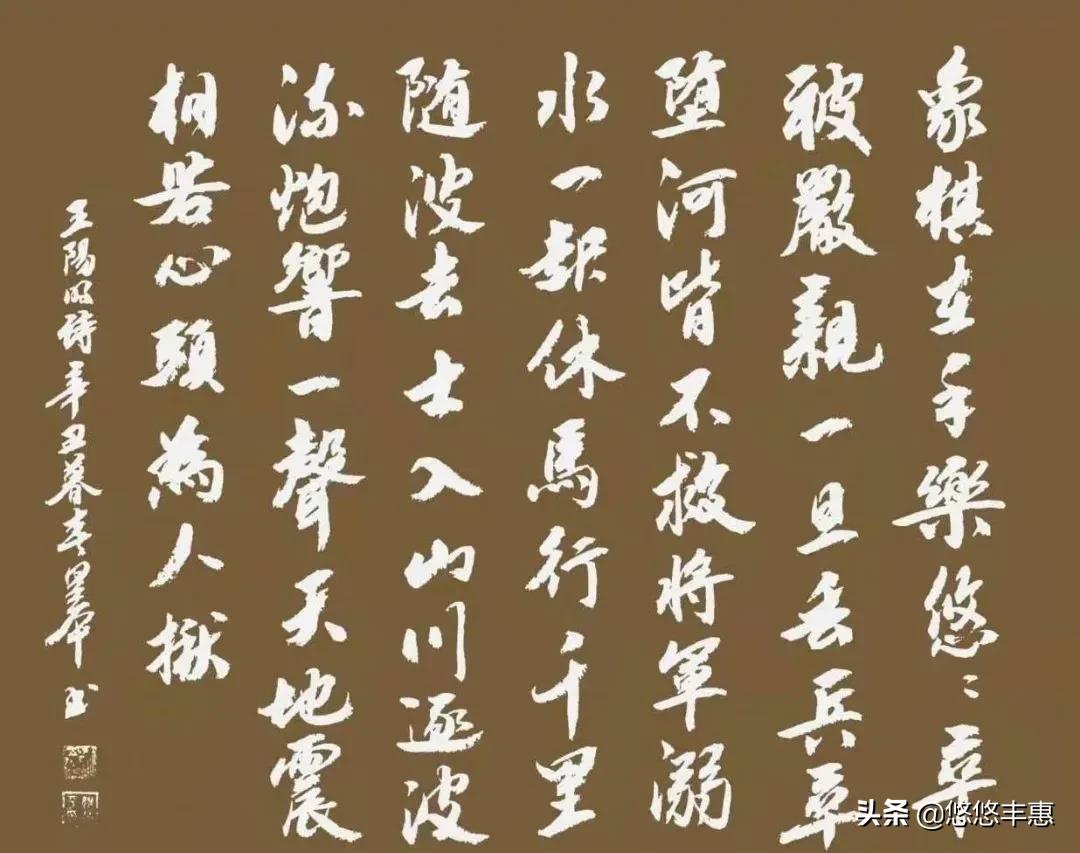 象棋在手樂悠〻辛
被嚴親一旦丢兵卒
堕河皆不救將軍溺
水一起休馬行千里
随波去士入山川逐波
流炮響一聲天地震
相若心頭為人揪
王陽明詩辛丑暮春书
头条 @悠悠丰惠